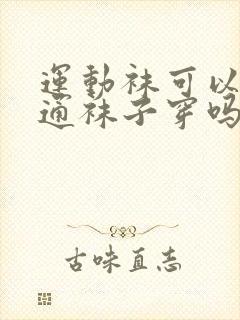 運動袜可以
通袜子穿吗
古味直志